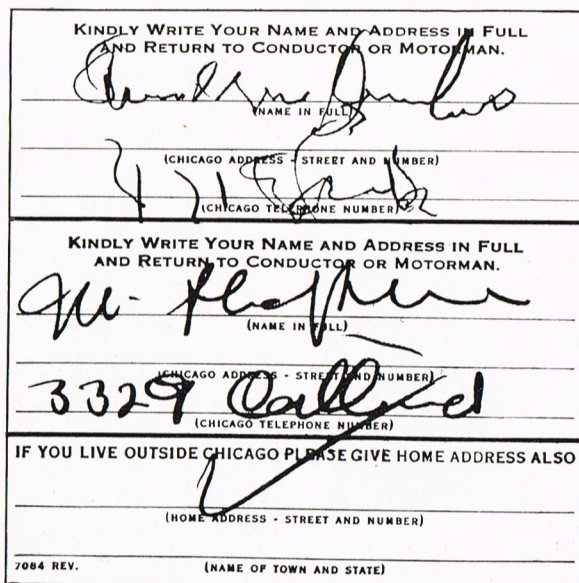 KINDLY WRITE YOUR NAME AND ADDRESS IN FULL
AND RETURN TO CONDUCTOR OR MOTORMAN.
(NAME IN FULL)
(CHICAGO ADDRESS - STREET AND NUMBER)
(CHICAGO TELEPHONE NUMBER)
KINDLY WRITE YOUR NAME AND ADDRESS IN FULL
AND RETURN TO CONDUCTOR OR MOTORMAN.
(NAME IN FULL)
(CHICAGO ADDRESS - STREET AND NUMBER)
3329
(CHICAGO TELEPHONE NUMBER)
IF YOU LIVE OUTSIDE CHICAGO PLEASE GIVE HOME ADDRESS ALSO
(HOME ADDRESS - STREET AND NUMBER)
7084 REV. (NAME OF TOWN AND STATE)